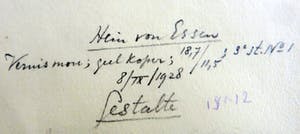 Hein von Essen
Vernis mou; geel koper; 18,7/11,5; 3e st. No 1
8/IX/1928
Gestalte 191-12